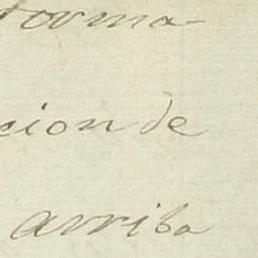 forma-
cion de
arriba